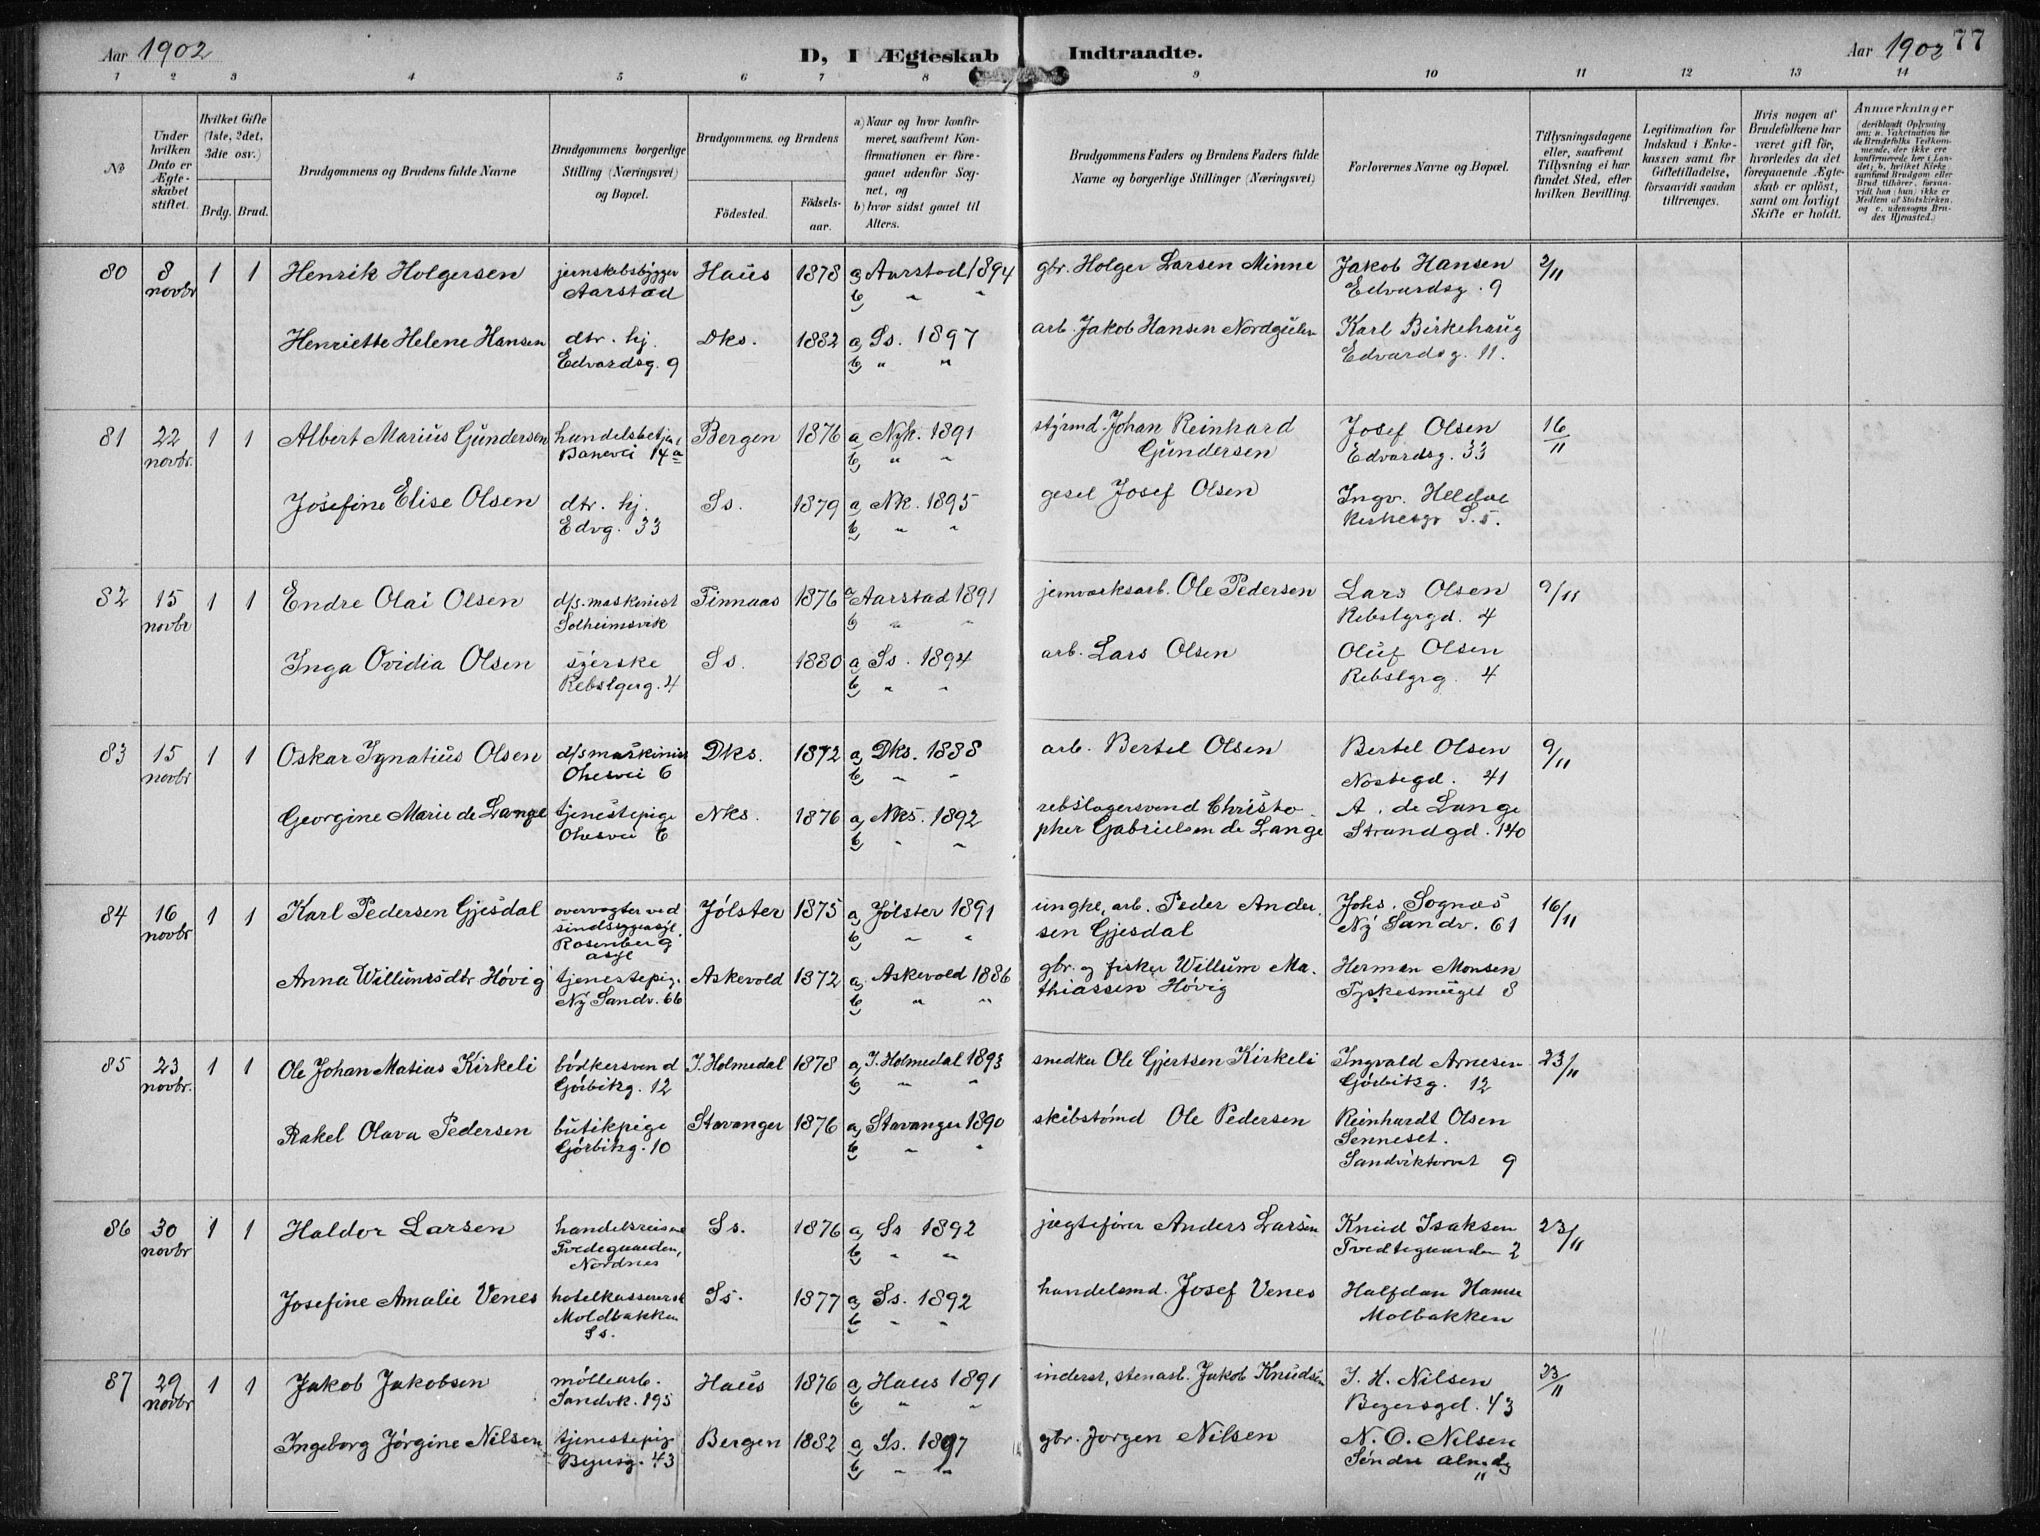 Aar 1902
D, I Ægteskab Indtraadte.
Aar 1902 77
1 2 3 4 5 6 7 8 9 10 11 12 13 14
No
Under hvilken Dato er Ægteskabet stiftet.
Hvilket Gifte (1ste, 2det, 3die osv.)
Brdg. Brud.
Brudgommens og Brudens fulde Navne
Brudgommens borgerlige Stilling (Næringsvei) og Bopæl.
Brudgommens. og Brudens
Födested.
Födsels-aar.
a) Naar og hvor konfirmeret, saafremt Konfirmationen er foregaaet udenfor Sognet, og
b) hvor sidst gaaet til Alters.
Brudgommens Faders og Brudens Faders fulde Navne og borgerlige Stillinger (Næringsvei)
Forlovernes Navne og Bopæl.
Tillysningsdagene eller, saafremt Tillysning ei har fundet Sted, efter hvilken Bevilling.
Legitimation for Indskud i Enkekassen samt for Giftetilladelse, forsaavidt saadan tiltrænges.
Hvis nogen af Brudefolkene har været gift för, hvorledes da det foregaaende Ægteskab er oplöst, samt om lovligt Skifte er holdt.
Anmærkninger
(deriblandt Oplysning om: a. Vakcination for de Brudefolks Vedkommende, der ikke ere konfirmerede her i Landet; b. hvilket Kirkesamfund Brudgom eller Brud tilhörer, forsaavidt han (hun) ikke er Medlem af Statskirken. og c. udensogns Brudes Hjemsted.)
80 8 novbr 1 1 Henrik Holgersen jernskibsbygger Aarstad Haus 1878 a) Aarstad 1894 b) " " gbr. Holger Larsen Minne Jakob Hansen Edvardsg. 9 2/11
Henriette Helene Hansen dtr. hj. Edvardsg. 9 Dks. 1882 a) Ss. 1897 b) " " arb. Jakob Hansen Nordgulen Karl Birkehaug Edvardsg. 11.
81 22 novbr. 1 1 Albert Marius Gundersen handelsbetjent Banevei 14a Bergen 1876 a) Nyk. 1891 b) " " styrmd. Johan Reinhard Gundersen Josef Olsen Edvardsg. 33 16/11
Josefine Elise Olsen dtr. hj. Edvg. 33 Ss. 1879 a) Nk. 1895 b) " " gesel Josef Olsen Ingv. Heldal S. 5.
82 15 novbr 1 1 Endre Olai Olsen d/s. maskinist Solheimsvik Finnaas 1876 a) Aarstad 1891 b) " " jernværksarb. Ole Pedersen Lars Olsen Rebslgrgd. 4 9/11
Inga Ovidia Olsen syerske Rebslgerg. 4 Ss. 1880 a) Ss. 1894 b) " " arb. Lars Olsen Oluf Olsen Rebslgrg. 4
83 15 novbr 1 1 Oskar Ignatius Olsen d/s maskinist Ohesvei 6 Dks. 1872 a) Dks. 1888 b) " " arb. Bertel Olsen Bertel Olsen Nostegd. 41 9/11
Georgine Marie de Lange tjenestepige Ohesvei 6 Nks. 1876 a) Nks. 1892 b) " " rebslagersvend Christopher Gabrielsen de Lange A. de Lange Strandgd. 140
84 16 novbr. 1 1 Karl Pedersen Gjesdal overvogter ved sindssygeasyl. Rosenberg asyl Jølster 1875 a) Jølster 1891 b) " " ungke, arb. Peder Andersen Gjesdal Johs. Sognæs Ny Sandv. 61 16/11
Anna Willumsdtr Høvig tjenestepig. Ny Sandv. 66 Askevold 1872 a) Askevold 1886 b) " " gbr. og fisker Willum Mathiassen Høvig Herman Monsen Tyskesmuget 8
85 23 novbr. 1 1 Ole Johan Matias Kirkeli bødkersvend Gørbitzg. 12 I. Holmedal 1878 a) I. Holmedal 1893 b) " " snedker Ole Gjertsen Kirkeli Ingvald Arnesen Gørbitzg. 12 23/11
Rakel Olava Pedersen butikpige Gørbitzg. 10 Stavanger 1876 a) Stavanger 1890 b) " " skibstømd Ole Pedersen Reinhardt Olsen Senneset. Sandviktorvet 9
86 30 novbr 1 1 Haldor Larsen handelsreisende Tvedegaarden, Nordnes Ss. 1876 a) Ss 1892 b) " " jægtefører Anders Larsen Knud Isaksen Tvedtegaarden 2 23/11
Josefine Amalie Venes hotelkassererske Moldbakken Ss. Ss. 1877 a) Ss. 1892 b) " " handelsmd. Josef Venes Halfdan Molbakken
87 29 novbr 1 1 Jakob Jakobsen møllearb. Sandvk. 195 Haus 1876 a) Haus 1891 b) " " inderst, stenarb. Jakob Knudsen I. H. Nilsen 43 23/11
Ingeborg Jørgine Nilsen tjenestepig 43 Bergen 1882 a) Ss. 1897 b) " " gbr. Jorgen Nilsen N. O. Nilsen Søndre